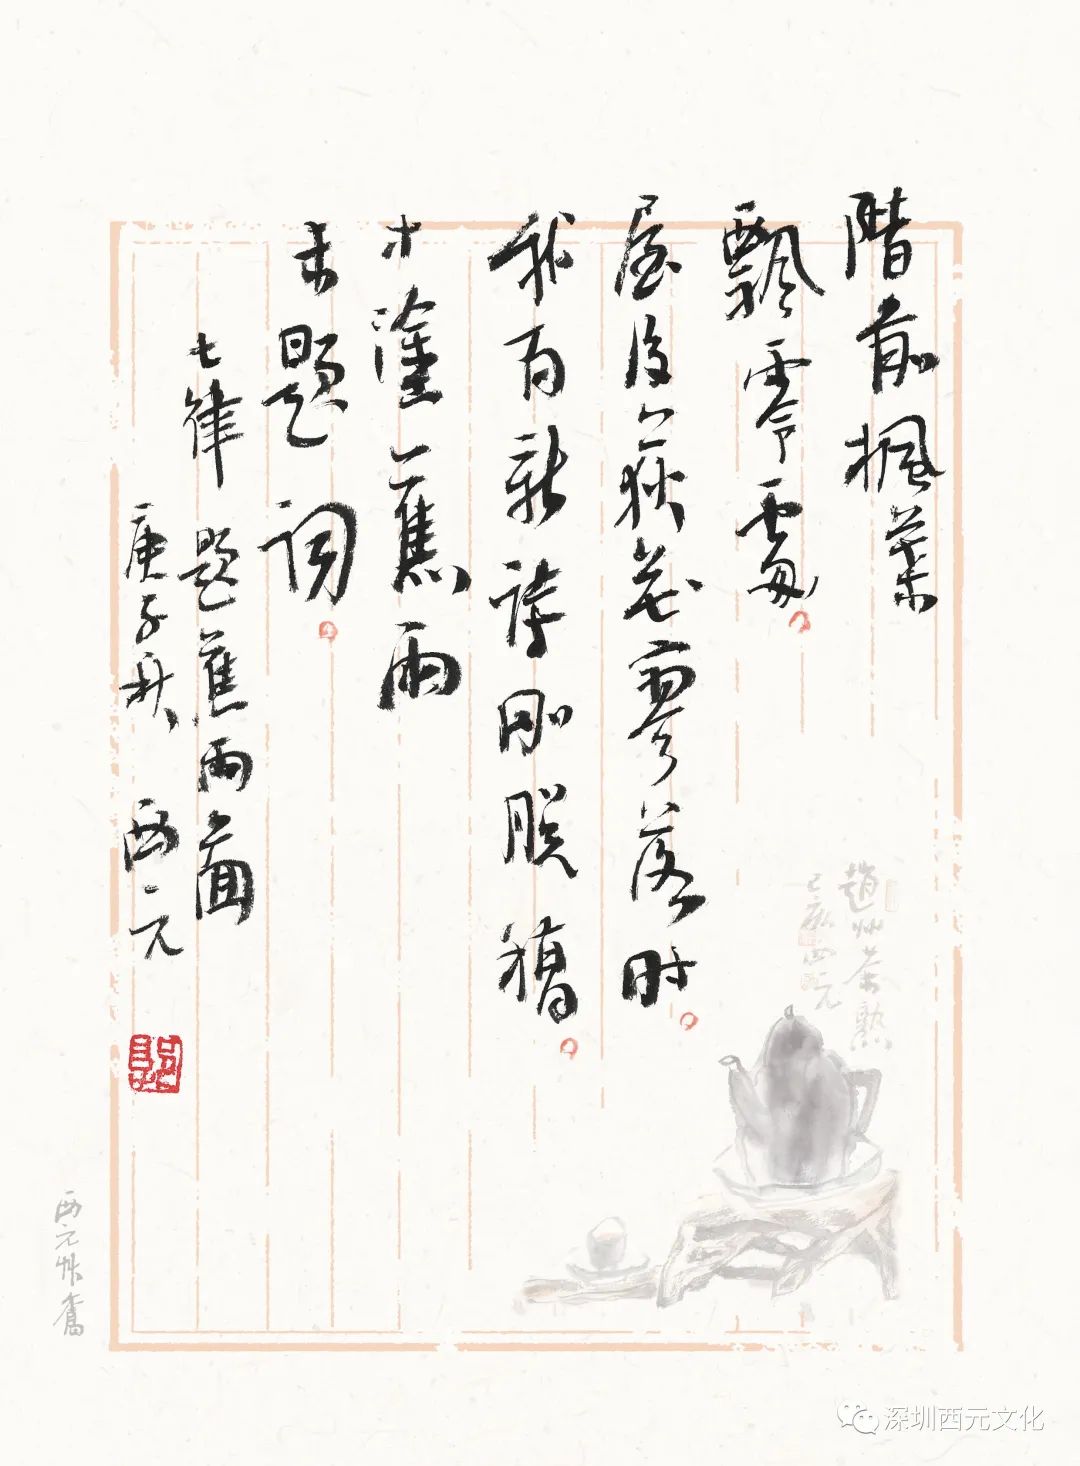 階前楓葉
飄零處
屋後荻花寥落時
我有新詩剛脫稿
才塗蕉雨
未題詞
七律 題蕉雨圖
庚子秋 西元
趙州茶熟
己亥西元
西元
深圳西元文化